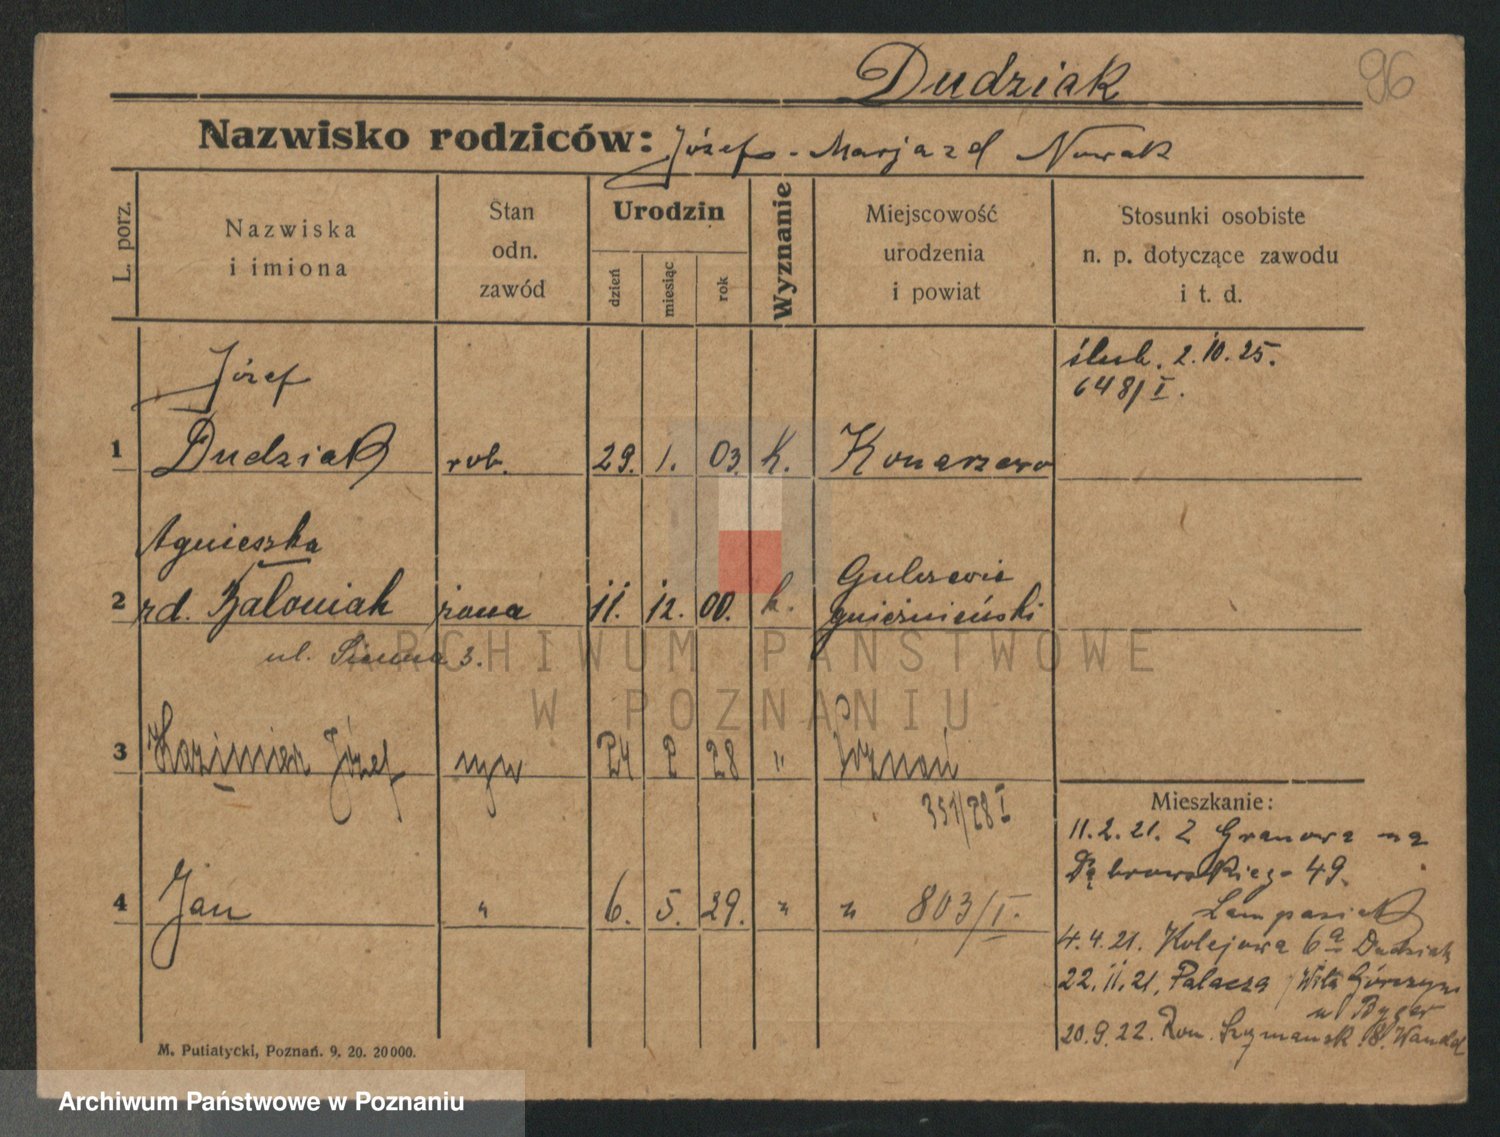 96
Dudziak
Nazwisko rodziców: Józef - Marja zd Nowak
L. porz.
Nazwiska
i imiona
Stan
odn.
zawód
Urodzin
dzień
miesiąc
rok
Wyznanie
Miejscowość
urodzenia
i powiat
Stosunki osobiste
n. p. dotyczące zawodu
i t. d.
ślub. 2.10.25.
648/I.
Józef
1 Dudziak rob. 29. 1. 03. k. Konarzewo
Agnieszka
2 rd. żona 11. 12. 00. k. gnieźnieński
ul. 3.
3 Kazimierz Józef syn 24 2 28 " Poznań
351/28 I
4 Jan " 6. 5. 29. " " 803/I.
Mieszkanie:
11.2.21. Z Granowa na
Dąbrowskiego 49.
4.4.21. Kolejowa 6a Dudziak
22.11.21. Palacza
20.9.22. Rom. Szymańsk 8.
M. Putiatycki, Poznań. 9. 20. 20000.
ARCHIWUM PAŃSTWOWE
W POZNANIU
Archiwum Państwowe w Poznaniu